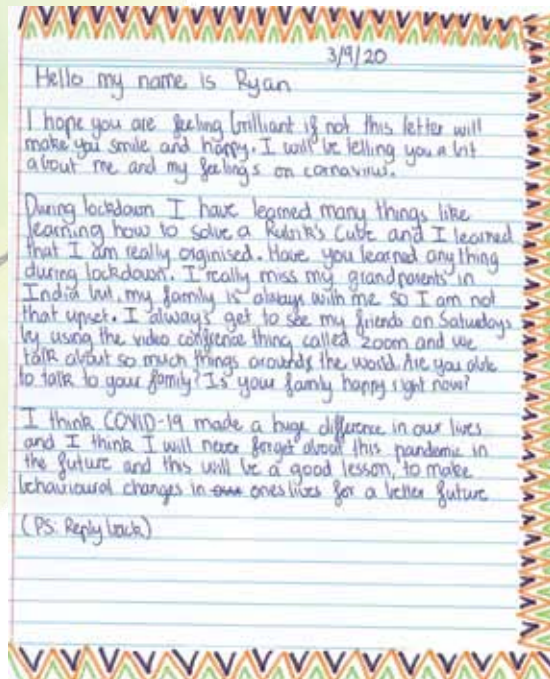 3/9/20
Hello my name is Ryan
I hope you are feeling brilliant if not this letter will
make you smile and happy. I will be telling you a bit
about me and my feelings on cornavirus.
During lockdown I have learned many things like
learning how to solve a Rubrik's Cube and I learned
that I am really orginised. Have you learned anything
during lockdown. I really miss my grandparents in
India but, my family is always with me so I am not
that upset. I always get to see my friends on Saturdays
by using the video confrence thing called zoom and we
talk about so much things arounds the world. Are you able
to talk to your family? Is your family happy right now?
I think COVID-19 made a huge difference in our lives
and I think I will never forget about this pandemic in
the future and this will be a good lesson, to make
behavioural changes in our ones lives for a better future
(PS: Reply back)